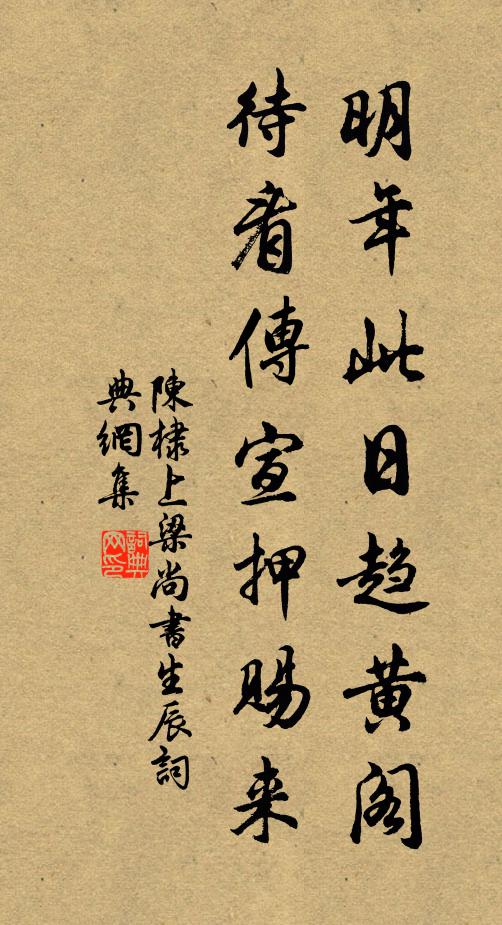 明年此日趨黄阁
待看傳宣押賜来
陳棣上梁尚書生辰詞
典網集
詞典网印